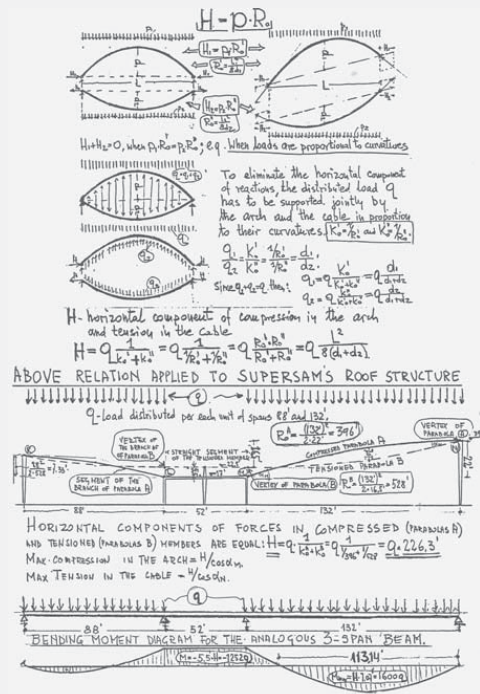 H = p·R₀
H₁ = p₁·R₀'
R₀' = L²/8d₁
H₂ = p₂·R₀"
R₀" = L²/8d₂
H₁+H₂=0, when p₁R₀'=p₂R₀"; eq. When loads are proportional to curvatures
q = q₁+q₂
To eliminate the horizontal component
of reactions, the distributed load q
has to be supported jointly by
the arch and the cable in proportion
to their curvatures. K₀'=1/R₀' and K₀"=1/R₀".
q₁/q₂ = K₀'/K₀" = (1/R₀')/(1/R₀") = d₁/d₂.
Since q₁+q₂=q, then:
q₁ = q K₀'/(K₀'+K₀") = q d₁/(d₁+d₂)
q₂ = q K₀"/(K₀'+K₀") = q d₂/(d₁+d₂)
H - horizontal component of compression in the arch
and tension in the cable
H = q 1/(K₀'+K₀") = q 1/(1/R₀'+1/R₀") = q R₀'·R₀"/(R₀'+R₀") = q L²/8(d₁+d₂)
ABOVE RELATION APPLIED TO SUPERSAM'S ROOF STRUCTURE
q
q-Load distributed per each unit of spans 88' and 132'.
R₀ᴬ = (132')²/2·22' = 396'
VERTEX OF
PARABOLA
VERTEX
OF THE BRANCH
OF PARABOLA B
STRAIGHT SEGMENT
COMPRESSED PARABOLA A
TENSIONED PARABOLA B
SEGMENT OF THE
BRANCH OF PARABOLA A
VERTEX OF PARABOLA B
R₀ᴮ = (132')²/2·16.5' = 528'
88' 52' 132'
HORIZONTAL COMPONENTS OF FORCES IN COMPRESSED (PARABOLAS A)
AND TENSIONED (PARABOLAS B) MEMBERS ARE EQUAL: H = q·1/(K₀ᴬ+K₀ᴮ) = q 1/(1/396'+1/528') = q·226.3'
MAX. COMPRESSION IN THE ARCH = H/cosαₘ.
MAX TENSION IN THE CABLE = H/cosαₙ.
q
88' 52' 132'
BENDING MOMENT DIAGRAM FOR THE ANALOGOUS 3-SPAN BEAM.
M = -5.5·H = -1252q
113,14'